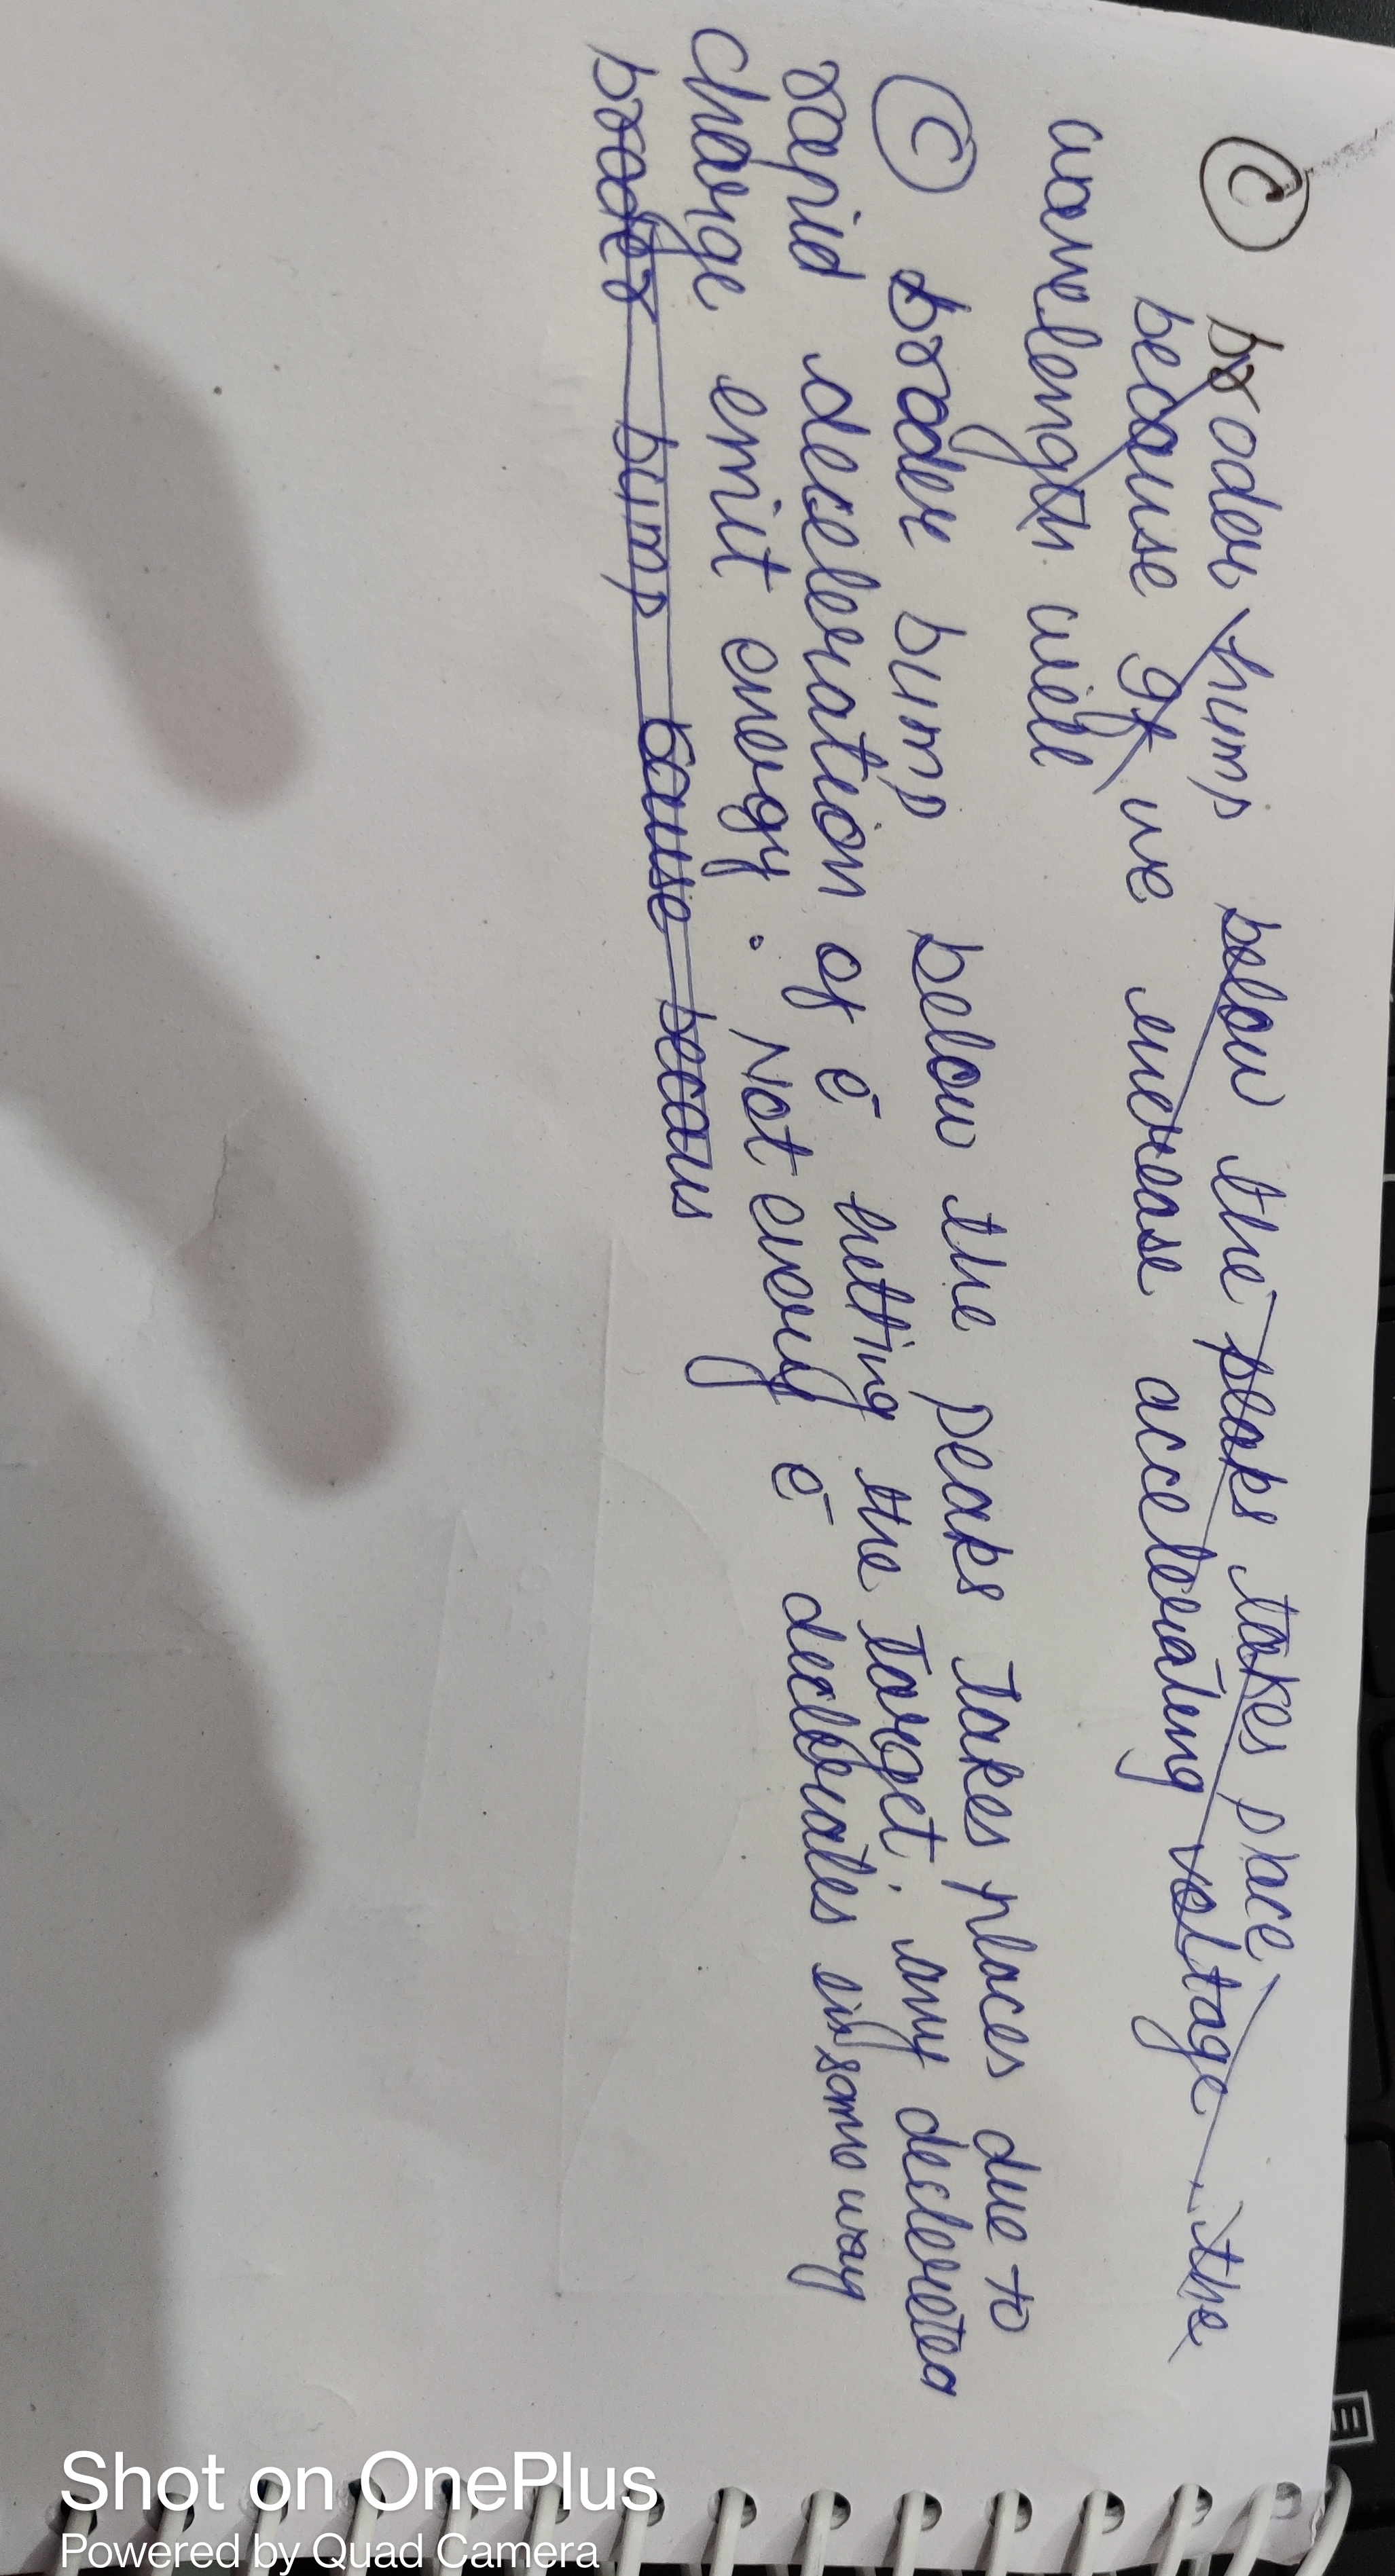 C broder hump below the peaks takes place
because If we increase accelerating voltage the
wavelength will
C broder bump below the peaks Takes places due to
rapid deceleration of ē hitting the Target. any declereted
charge emit energy. Not every ē declerates in same way
broder bump cause becaus
Shot on OnePlus
Powered by Quad Camera